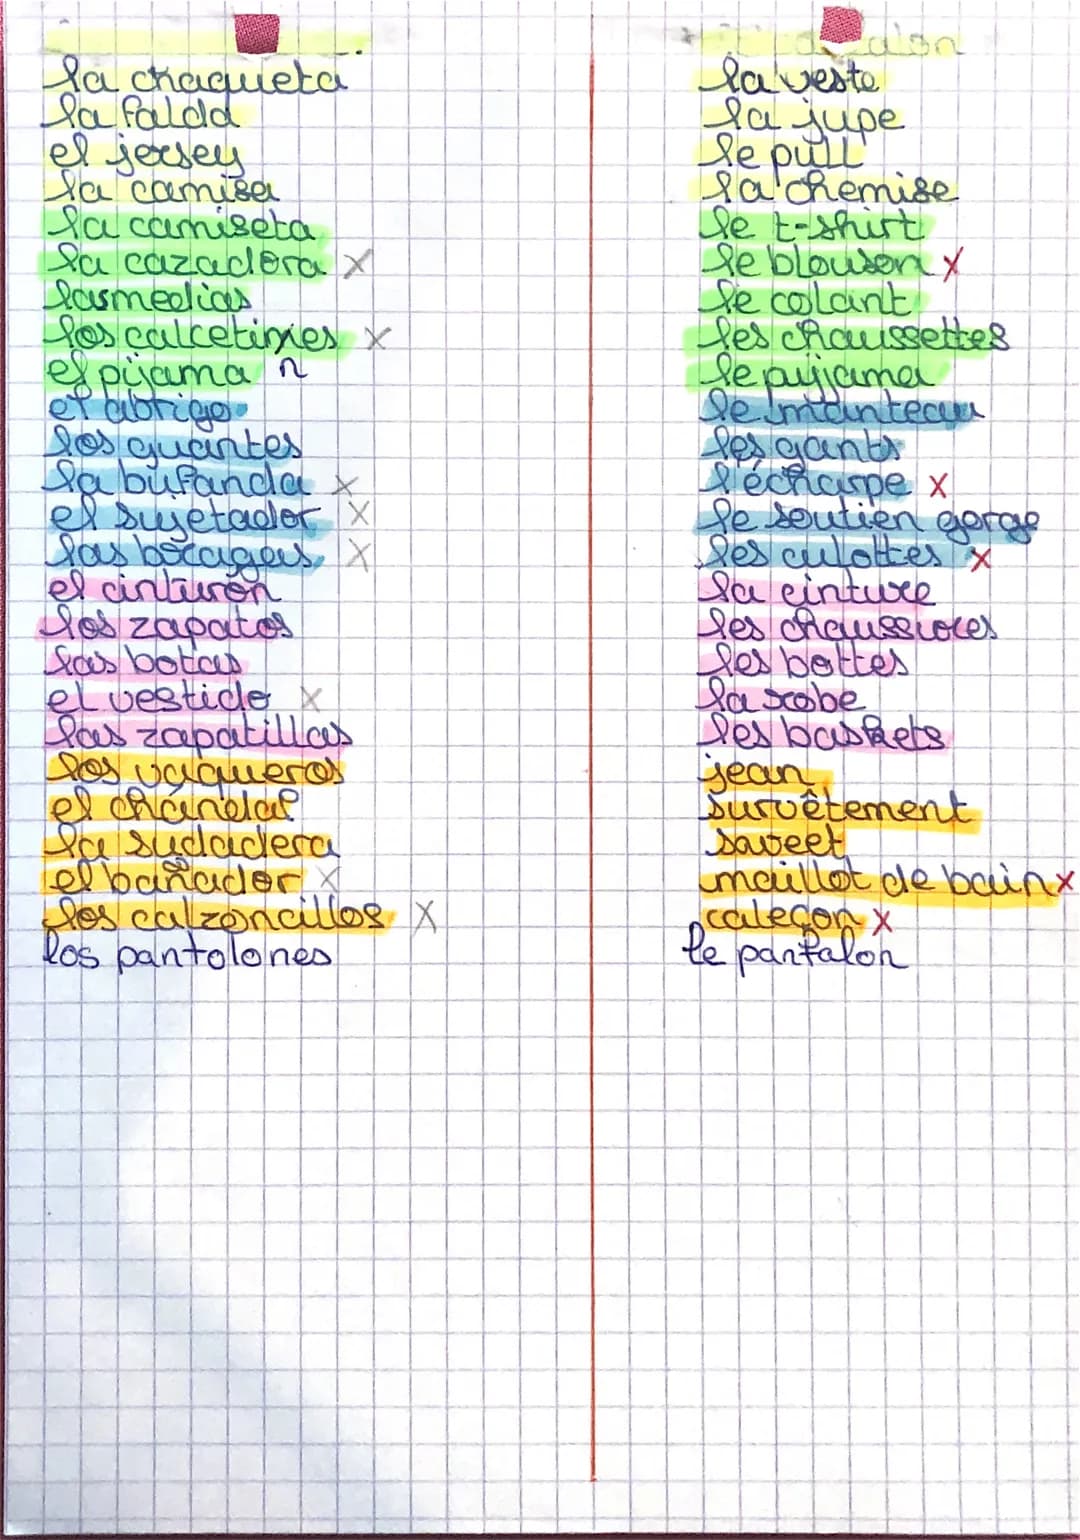 la chaqueta la veste
la falda la jupe
el jersey le pull
la camisa la chemise
la camiseta le t-shirt
la cazadora x le blouson x
las medias le colant
los calcetines x les chaussettes
el pijama n le pyjama
el abrigo le manteau
los guantes les gants
la bufanda x l'écharpe x
el sujetador x le soutien gorge
las x les culottes x
el cinturón la cinture
los zapatos les chaussures
las botas les bottes
el vestido x la robe
las zapatillas les baskets
los vaqueros jean
el chándal survêtement
la sudadera sweet
el bañador x maillot de bain x
los calzoncillos x caleçon x
los pantolones le pantalon